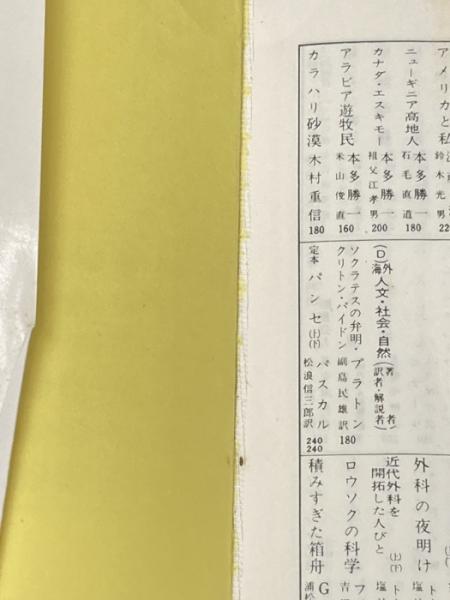 アメリカと私
鈴木光男
ニューギニア高地人 本多勝一
石毛直道 180
カナダ・エスキモー 本多勝一
祖父江孝男 200
アラビア遊牧民 本多勝一
米山俊直 160
カラハリ砂漠 木村重信 180
(D) 海外 人文・社会・自然 (著者 訳者・解説者)
ソクラテスの弁明・プラトン
クリトン・パイドン 副島民雄訳 180
定本 パンセ(上)(下) パスカル 240
松浪信三郎訳 240
外科の夜明け
近代外科を
開拓した人びと(上)(下)
ロウソクの科学
積みすぎた箱舟